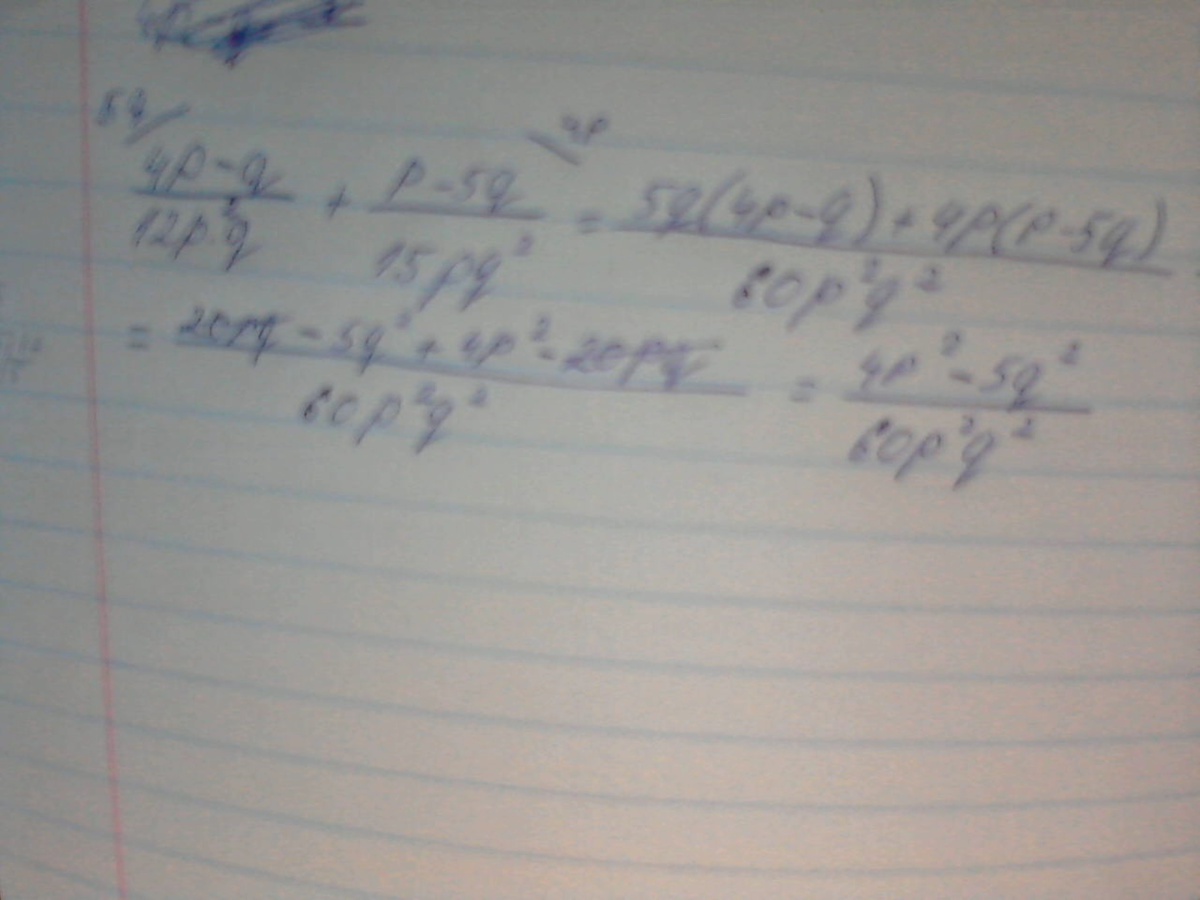 5q/ \4p
(4p-q)/(12p²q) + (p-5q)/(15pq²) = (5q(4p-q)+4p(p-5q))/(60p²q²)
= (20pq-5q²+4p²-20pq)/(60p²q²) = (4p²-5q²)/(60p²q²)